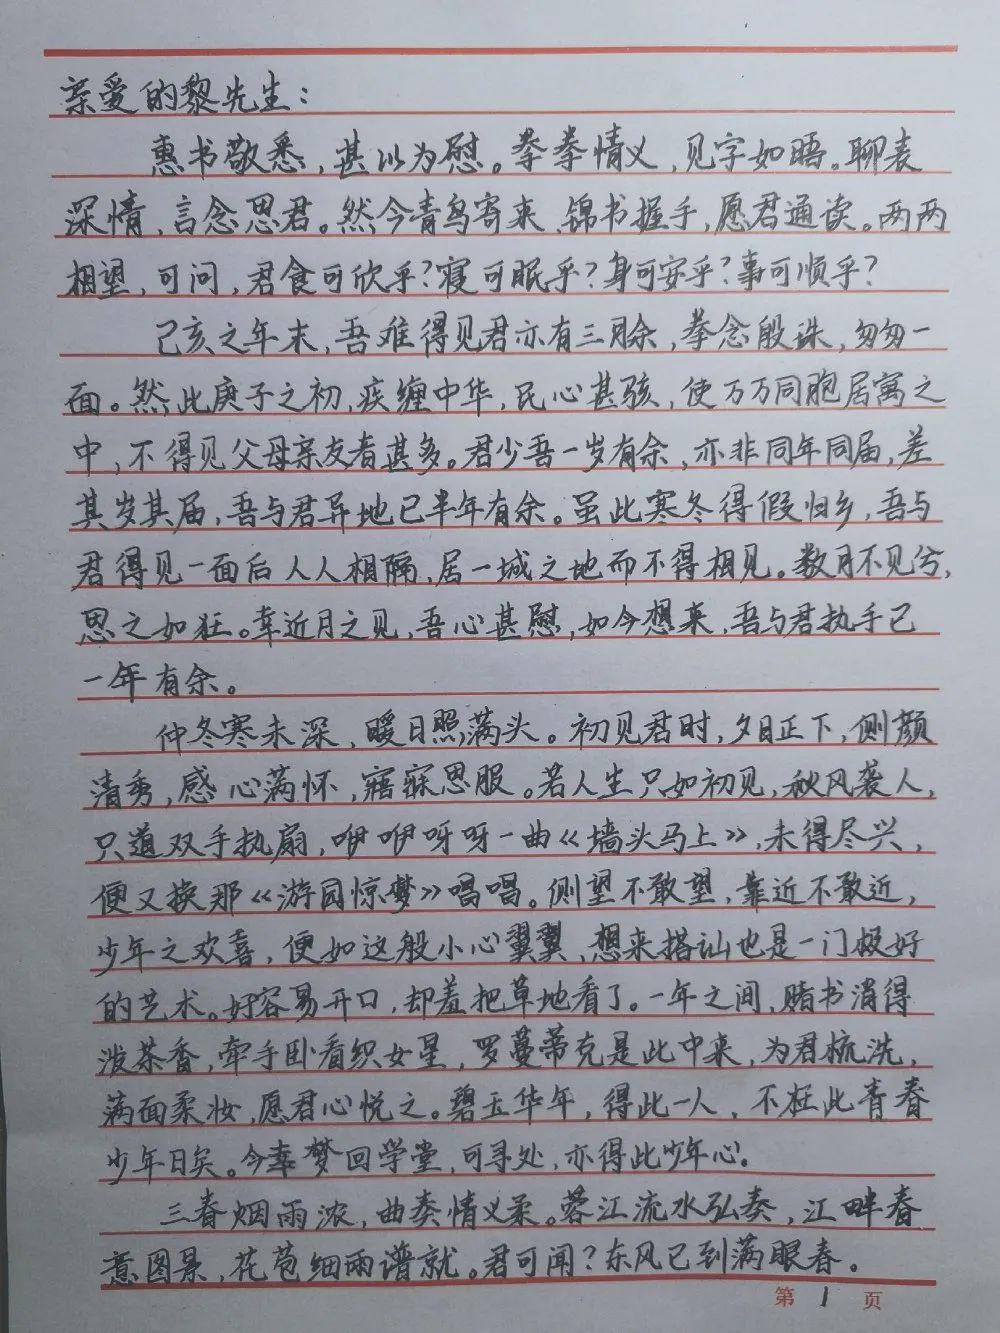 亲爱的黎先生：
惠书敬悉，甚以为慰。拳拳情义，见字如晤。聊表
深情，言念思君。然今青鸟寄来，锦书握手，愿君通读。两两
相望，可问，君食可欣乎？寝可眠乎？身可安乎？事可顺乎？
己亥之年末，吾难得见君亦有三月余，拳念殷殊，匆匆一
面。然，此庚子之初，疾缠中华，民心甚骇，使万万同胞居寓之
中，不得见父母亲友者甚多。君少吾一岁有余，亦非同年同届，差
其岁其届，吾与君异地已半年有余。虽此寒冬得假归乡，吾与
君得见一面后人人相隔，居一城之地而不得相见。数月不见兮，
思之如狂。幸近月之见，吾心甚慰，如今想来，吾与君执手已
一年有余。
仲冬寒未深，暖日照满头。初见君时，夕日正下，侧颜
清秀，感心满怀，寤寐思服。若人生只如初见，秋风袭人，
只道双手执扇，咿咿呀呀一曲《墙头马上》，未得尽兴，
便又换那《游园惊梦》唱唱。侧望不敢望，靠近不敢近，
少年之欢喜，便如这般小心翼翼，想来搭讪也是一门极好
的艺术。好容易开口，却羞把草地看了。一年之间，赌书消得
泼茶香，牵手卧看织女星，罗蔓蒂克是此中来，为君梳洗，
满面柔妆，愿君心悦之。碧玉华年，得此一人，不枉此青春
少年日矣。今幸梦回学堂，可寻处，亦得此少年心。
三春烟雨浓，曲奏情义柔。蓉江流水弘奏，江畔春
意图景，花苞细雨谱就。君可闻？东风已到满眼春。
第 1 页